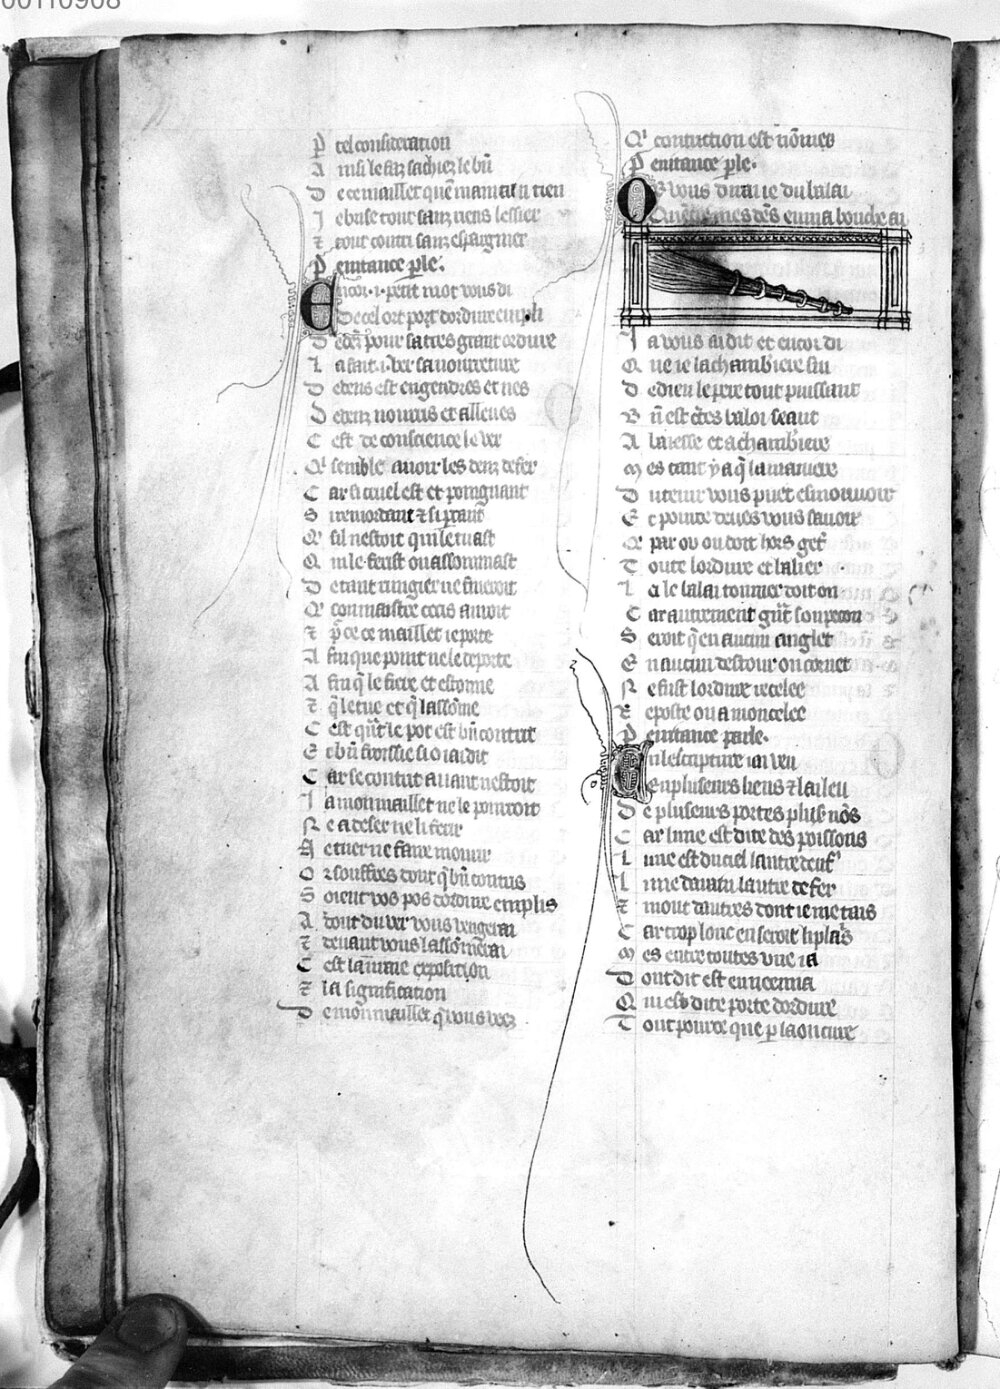 00110908
P tel consideration
A insi le faz sachiez le bn̄
D e ce maillet quē ma main tien
J e brise tout sanz riens lessier
⁊ tout contri sanz espargnier
P enitance ꝑle.
E ncor .i. petit mot vous di
De cel ort port dordure empli
D edē pour sa tres grant ordure
L a fait .i. ver sa nourreture
D edens est engendres et nes
D edenz nourris et alleues
C est de conscience le ver
Q' semble auoir les denz de fer
C ar si cruel est et poingnant
S i remordant ⁊ si ꝑcant
Q' sil nestoit qui le tuast
Q ui le ferist ou assommast
D e tant rungier ne fineroit
Q' son maistre occis auroit
⁊ pͦ ce ce maillet ie porte
A fin que point ne le deporte
A fin q̄ le fiere et estonne
⁊ q̄ le tue et q̄ lassōme
C est qn̄t le pot est bn̄ contrit
E t bn̄ froissie si o iai dit
C ar se contrit auant nestoit
J a mon maillet ne le pourroit
N e adeser ne li ferir
N e tuer ne faire mourir
O r souffres dont q̄ bn̄ contris
S oient vos pos dordure emplis
A dont du ver vous vengerai
⁊ deuant vous lassōmerai
C est la uraie exposition
⁊ la signification
D e mon maillet q̄ vous veez
Q' contriction est nōmes
P enitance ꝑle.
O R vous dirai ie du balai
Qu entre mes dēs en ma bouche ai
J a vous ai dit et encor di
Q ue ie la chambˀiere sui
D e dieu le pere tout puissant
B n̄ est cˀtes balai seant
A baiesse et a chambˀiere
M es tant y a q̄ la maniere
D u tenir vous puet esmouuoir
E t pour ce deues vous sauoir
Q' par ou on doit hors get'
T oute lordure et balier
L a le balai tourner doit on
C ar autrement gn̄t soupecon
S eroit q̄ en aucun anglet
E n aucun destour ou cornet
N e fust lordure recelee
R eposte ou amoncelee
P enitance parle.
E n lescripture iai veu
En pluseurs liens ⁊ lai leu
D e pluseurs portes plus' nōs
C ar lune est dite des poissons
L une est du ciel lautre denf'
L une darain lautre de fer
⁊ mout dautres dont ie me tais
C ar trop lonc en seroit li plais
M es entre toutes vne i a
D ont dit est en neemia
Q ui est dite porte dordure
T out pour ce que ꝑ la ouuure